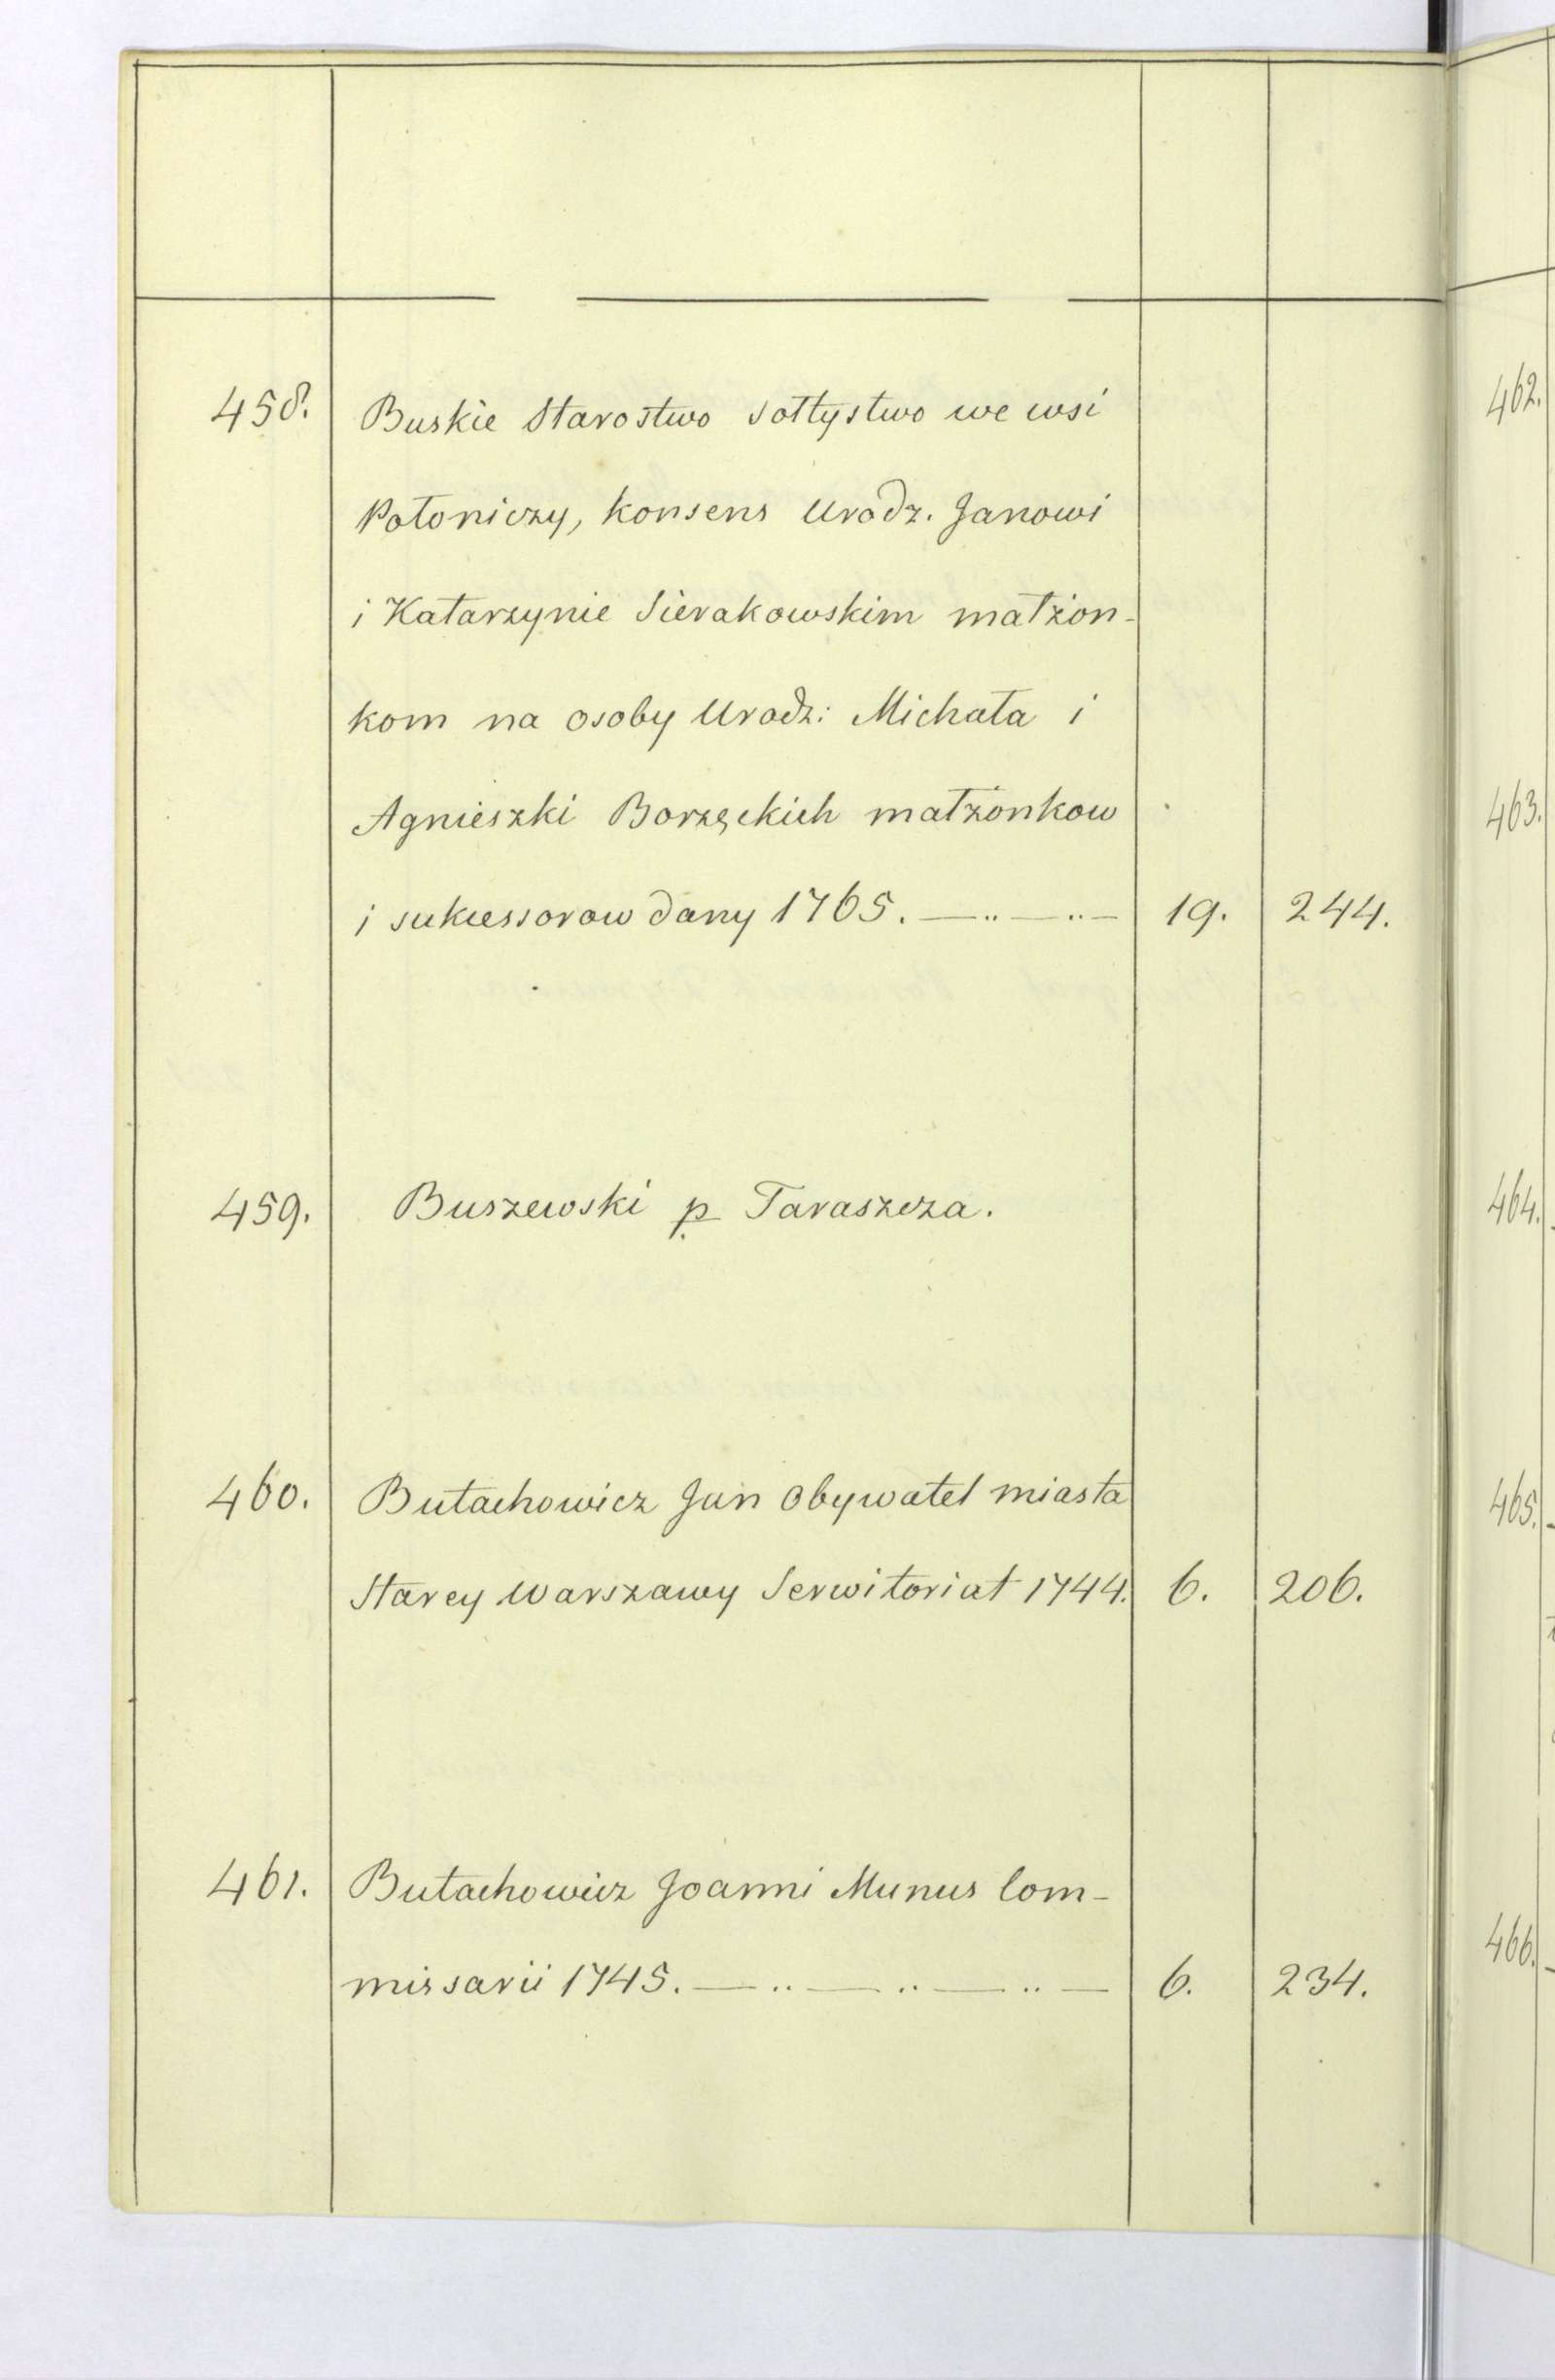 458. Buskie Starostwo sołtystwo we wsi
Połoniczy, konsens Urodz. Janowi
i Katarzynie Sierakowskim małżon-
kom na osoby Urodz: Michała i
Agnieszki Borzęckich małżonkow
i sukcessorow dany 1765. —..—..— 19. 244.
459. Buszewski p. Taraszcza.
460. Butachowicz Jan Obywatel miasta
Starey Warszawy Serwitoriat 1744. 6. 206.
461. Butachowicz Joanni Munus Com-
missarii 1745. —..—..—..— 6. 234.
462.
463.
464.
465.
466.